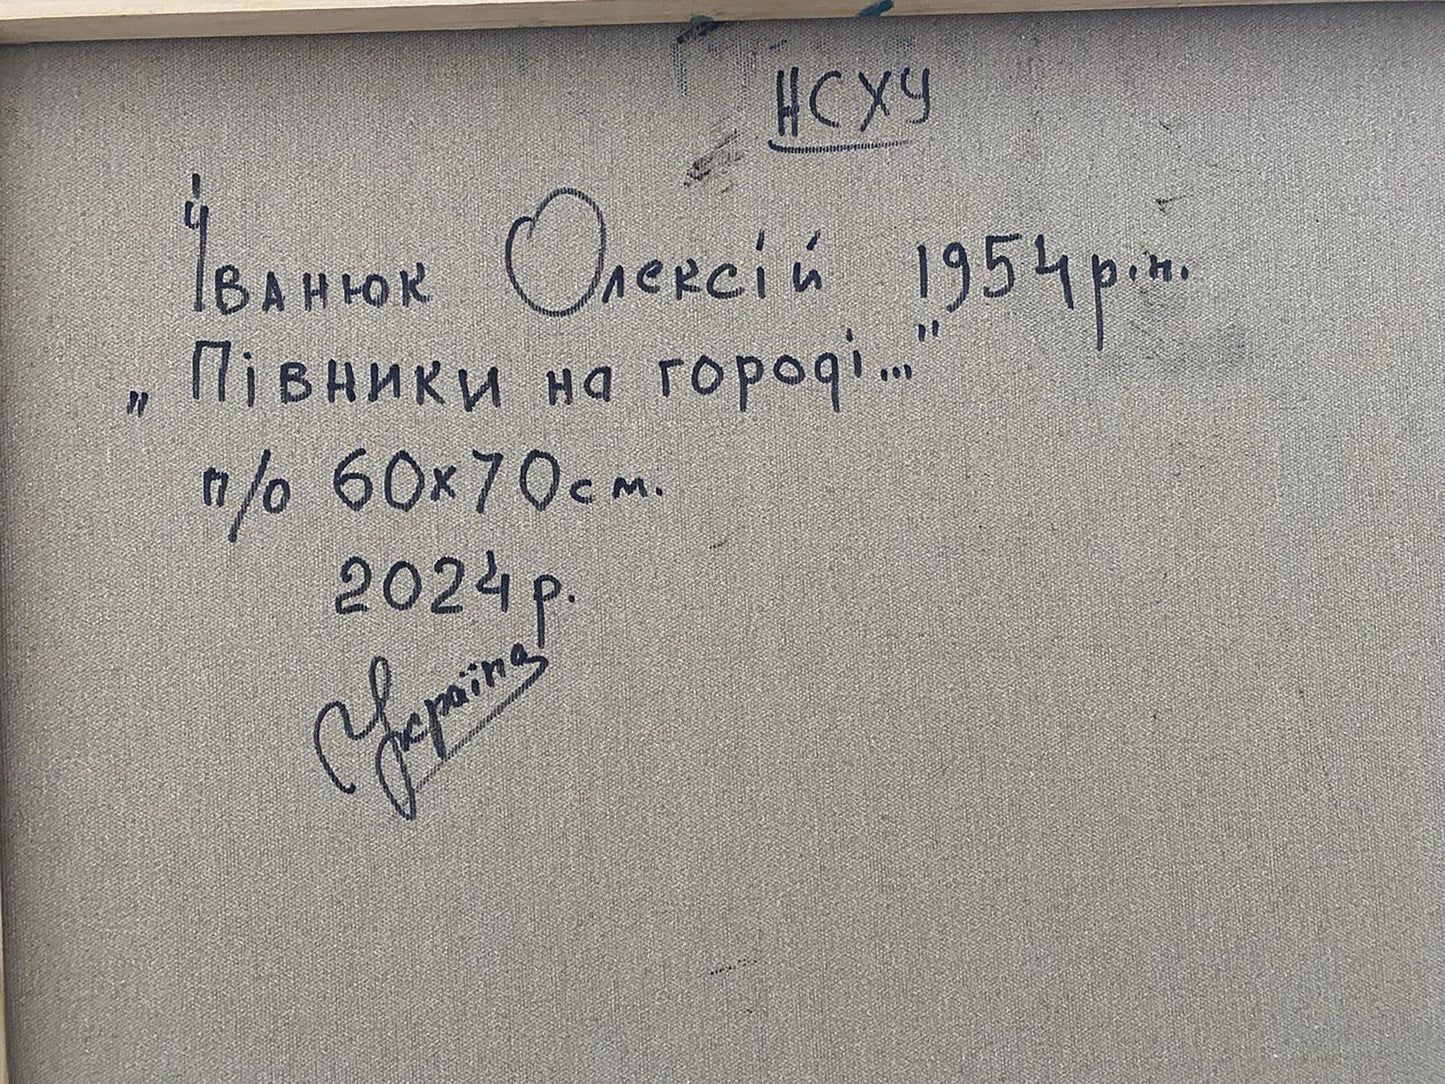 НСХУ
Іванюк Олексій 1954р.н.
„Півники на городі..."
п/о 60х70см.
2024р.
Україна